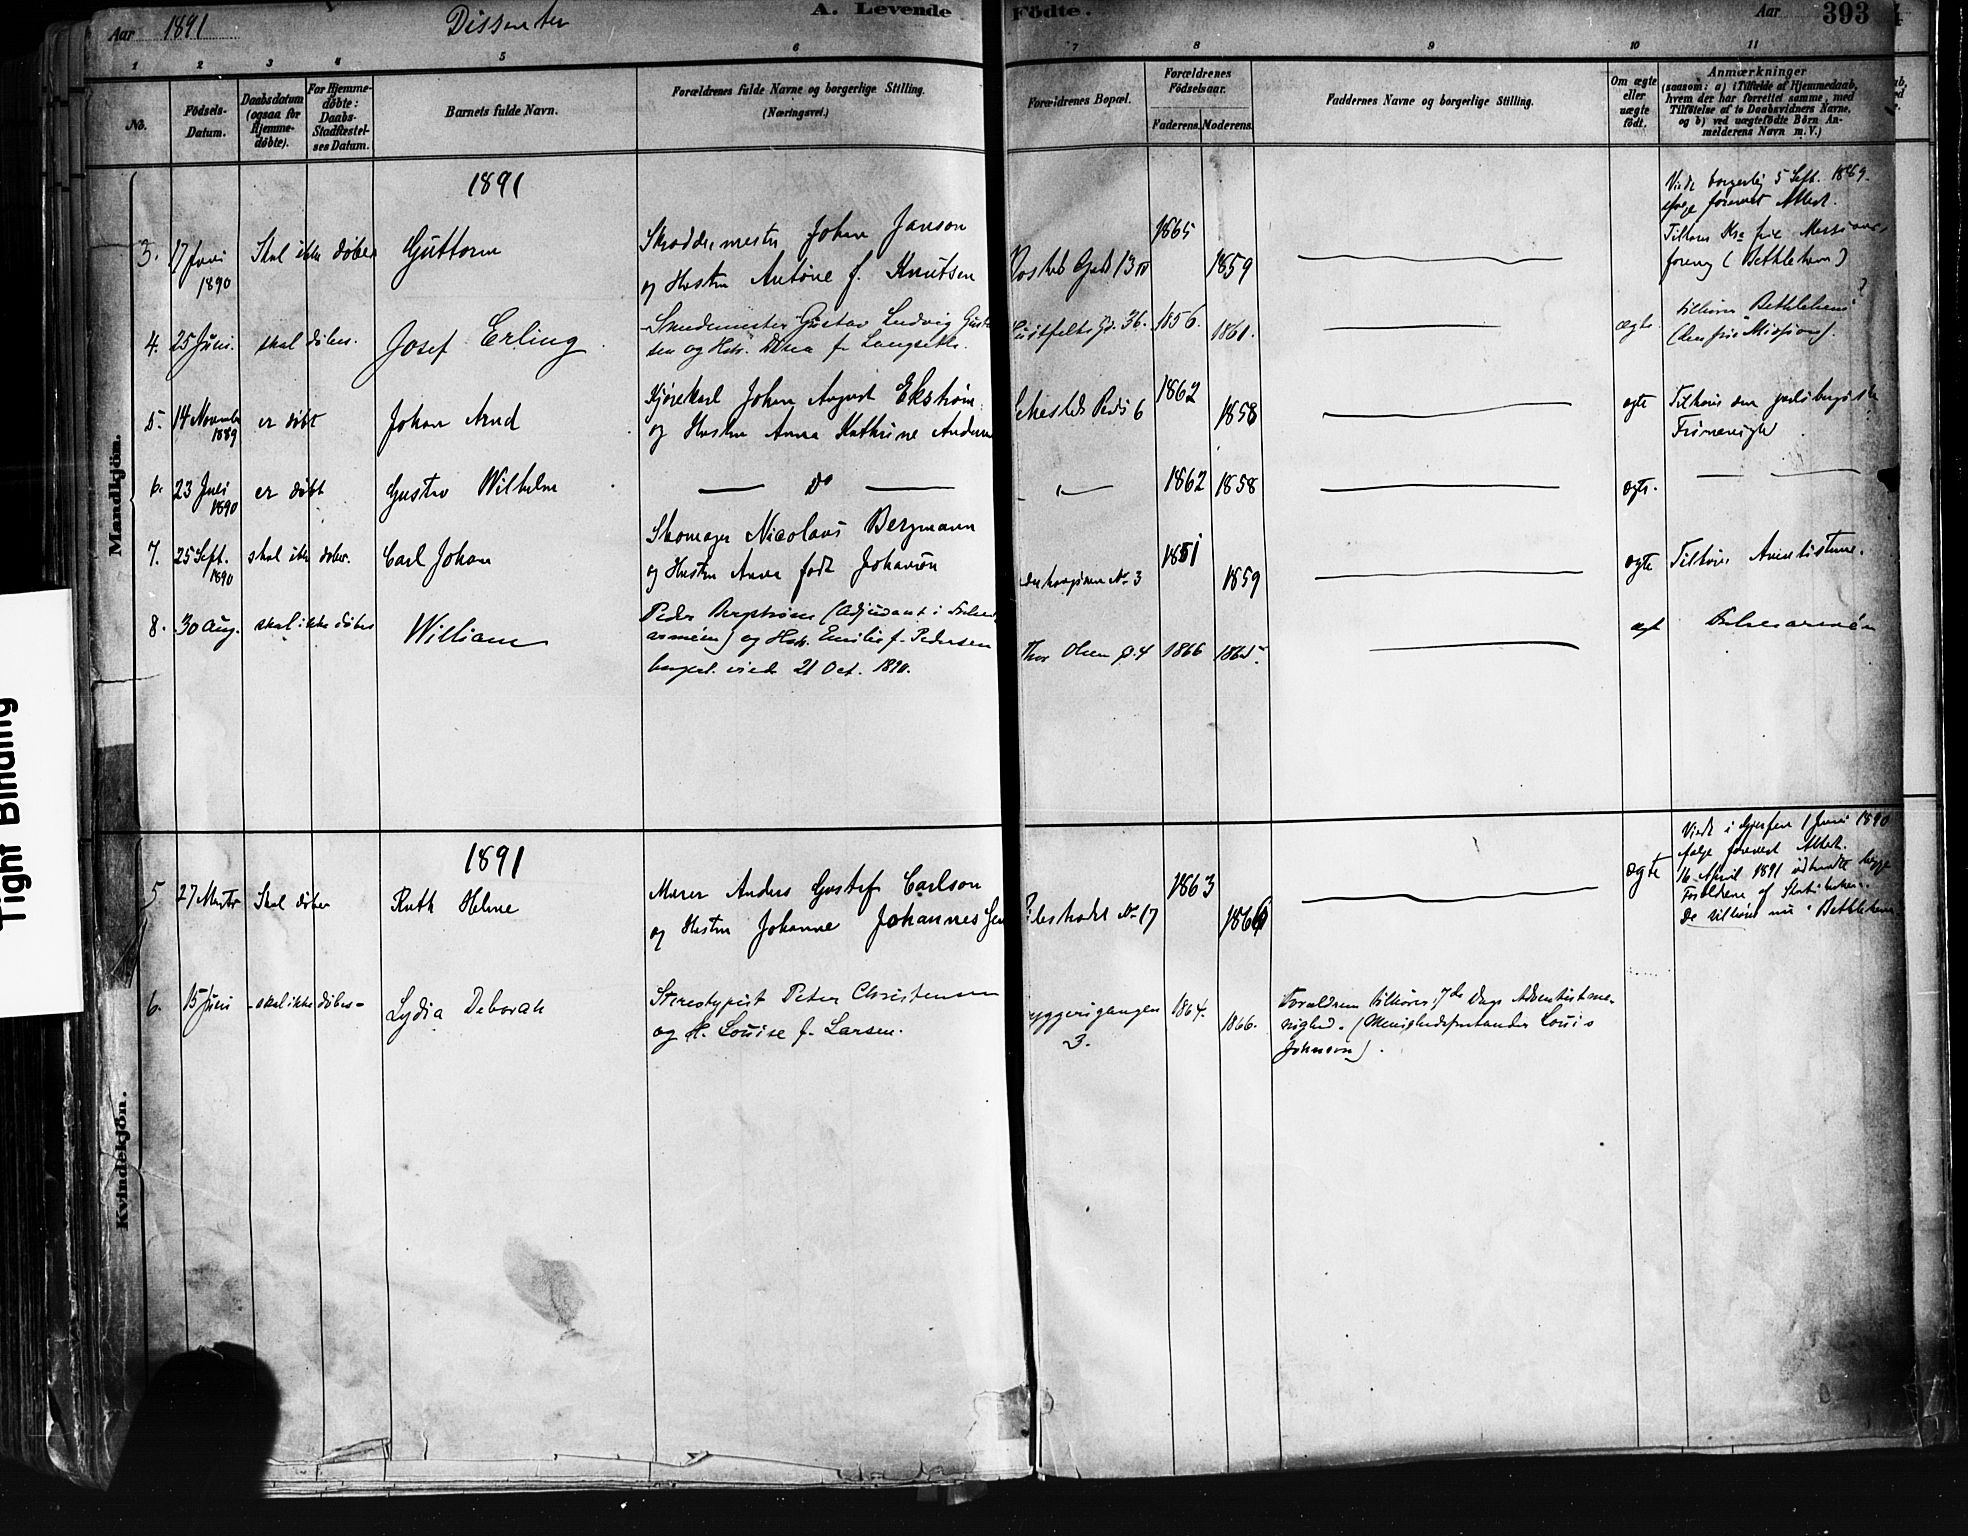 Aar 1891
Dissenter
A. Levende Födte.
Aar 393
1 2 3 4 5 6 7 8 9 10 11
No.
Födsels-Datum.
Daabsdatum (ogsaa for Hjemmedöbte).
For Hjemmedöbte: Daabs-Stadfæstelses Datum.
Barnets fulde Navn.
Forældrenes fulde Navne og borgerlige Stilling.
(Næringsvei.)
Forældrenes Bopæl.
Forældrenes Födselsaar.
Faderens. Moderens.
Faddernes Navne og borgerlige Stilling.
Om ægte eller uægte födt.
Anmærkninger
(saasom: a) i Tilfælde af Hjemmedaab, hvem der har forrettet samme, med Tilföielse af to Daabsvidners Navne, og b) ved uægtefödte Börn Anmelderens Navn m. V.)
Mandkjön.
1891
Viede borgerlig 5 Sept. 1889.
ifølge forevist Attest.
3. 17 Juni 1890 Skal ikke døbes Guttorm
Johan Janson
og Hustru Antone f. Knutsen
13 1865 1859
Tilhører Kra frie Missions
forening (Bethlehem)
4. 25 Juni. skal døbes. Josef Erling
Gustav Ludvig
sen og Hstr. f. Langseth.
36. 1856. 1861. ægte.
tilhører "Bethlehem"?
(den frie Mission).
5. 14 November 1889 er døbt Johan Arnd
Kjørekarl Johan August Ekstrøm
og Hustru Anna Kathrine Andersen
6 1862 1858 ægte
Tilhører den
Frimenighed
6. 23 Juli 1890 er døbt Gustav Wilhelm
— Do —
— " — 1862 1858 ægte.
7. 25 Sept. 1890 skal ikke døbes. Carl Johan
Skomager Nicolaus Bergmann
og Hustru Anna født
No 3 1851 1859 ægte
Tilhører Aventisterne.
8. 30 Aug. skal ikke døbes William
Peder Bergstrøm (Adjudant i Frelses
armeen) og Hstr. Emilie f. Pedersen
borgerl. viede 21 Oct. 1890.
Thor Olsen g. 4 1866 1865. ægt
Frelsesarméen
Kvindekjön.
1891
5 27 Marts Skal døbes Ruth Helene
Murer Anders Gustaf Carlson
og Hustru Johanne Johannesen
No 17 1863 1866 ægte
Viede i 1 Juni 1890
ifølge forevist Attest.
16 April 1891 udtraadte begge
Forældrene af Statskirken.
De tilhører nu "Bethlehem
6. 15 Juni - skal ikke døbes - Lydia Deborah
Stereotypist Peter Christensen
og H. Louise f. Larsen.
yggerigangen 3. 1864. 1866.
Forældrene tilhører 7de Dags Adventistme-
nighed. (Menighedsforstander Louis
Johnson).
Tight Binding